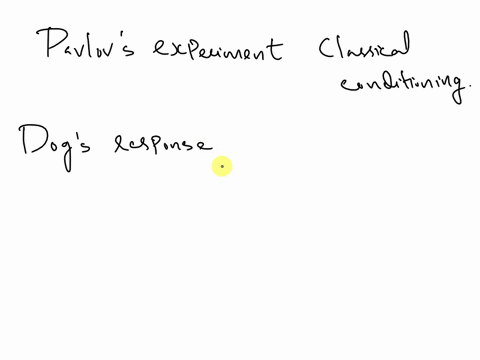 Pavlov's experiment Classical
conditioning.
Dog's response